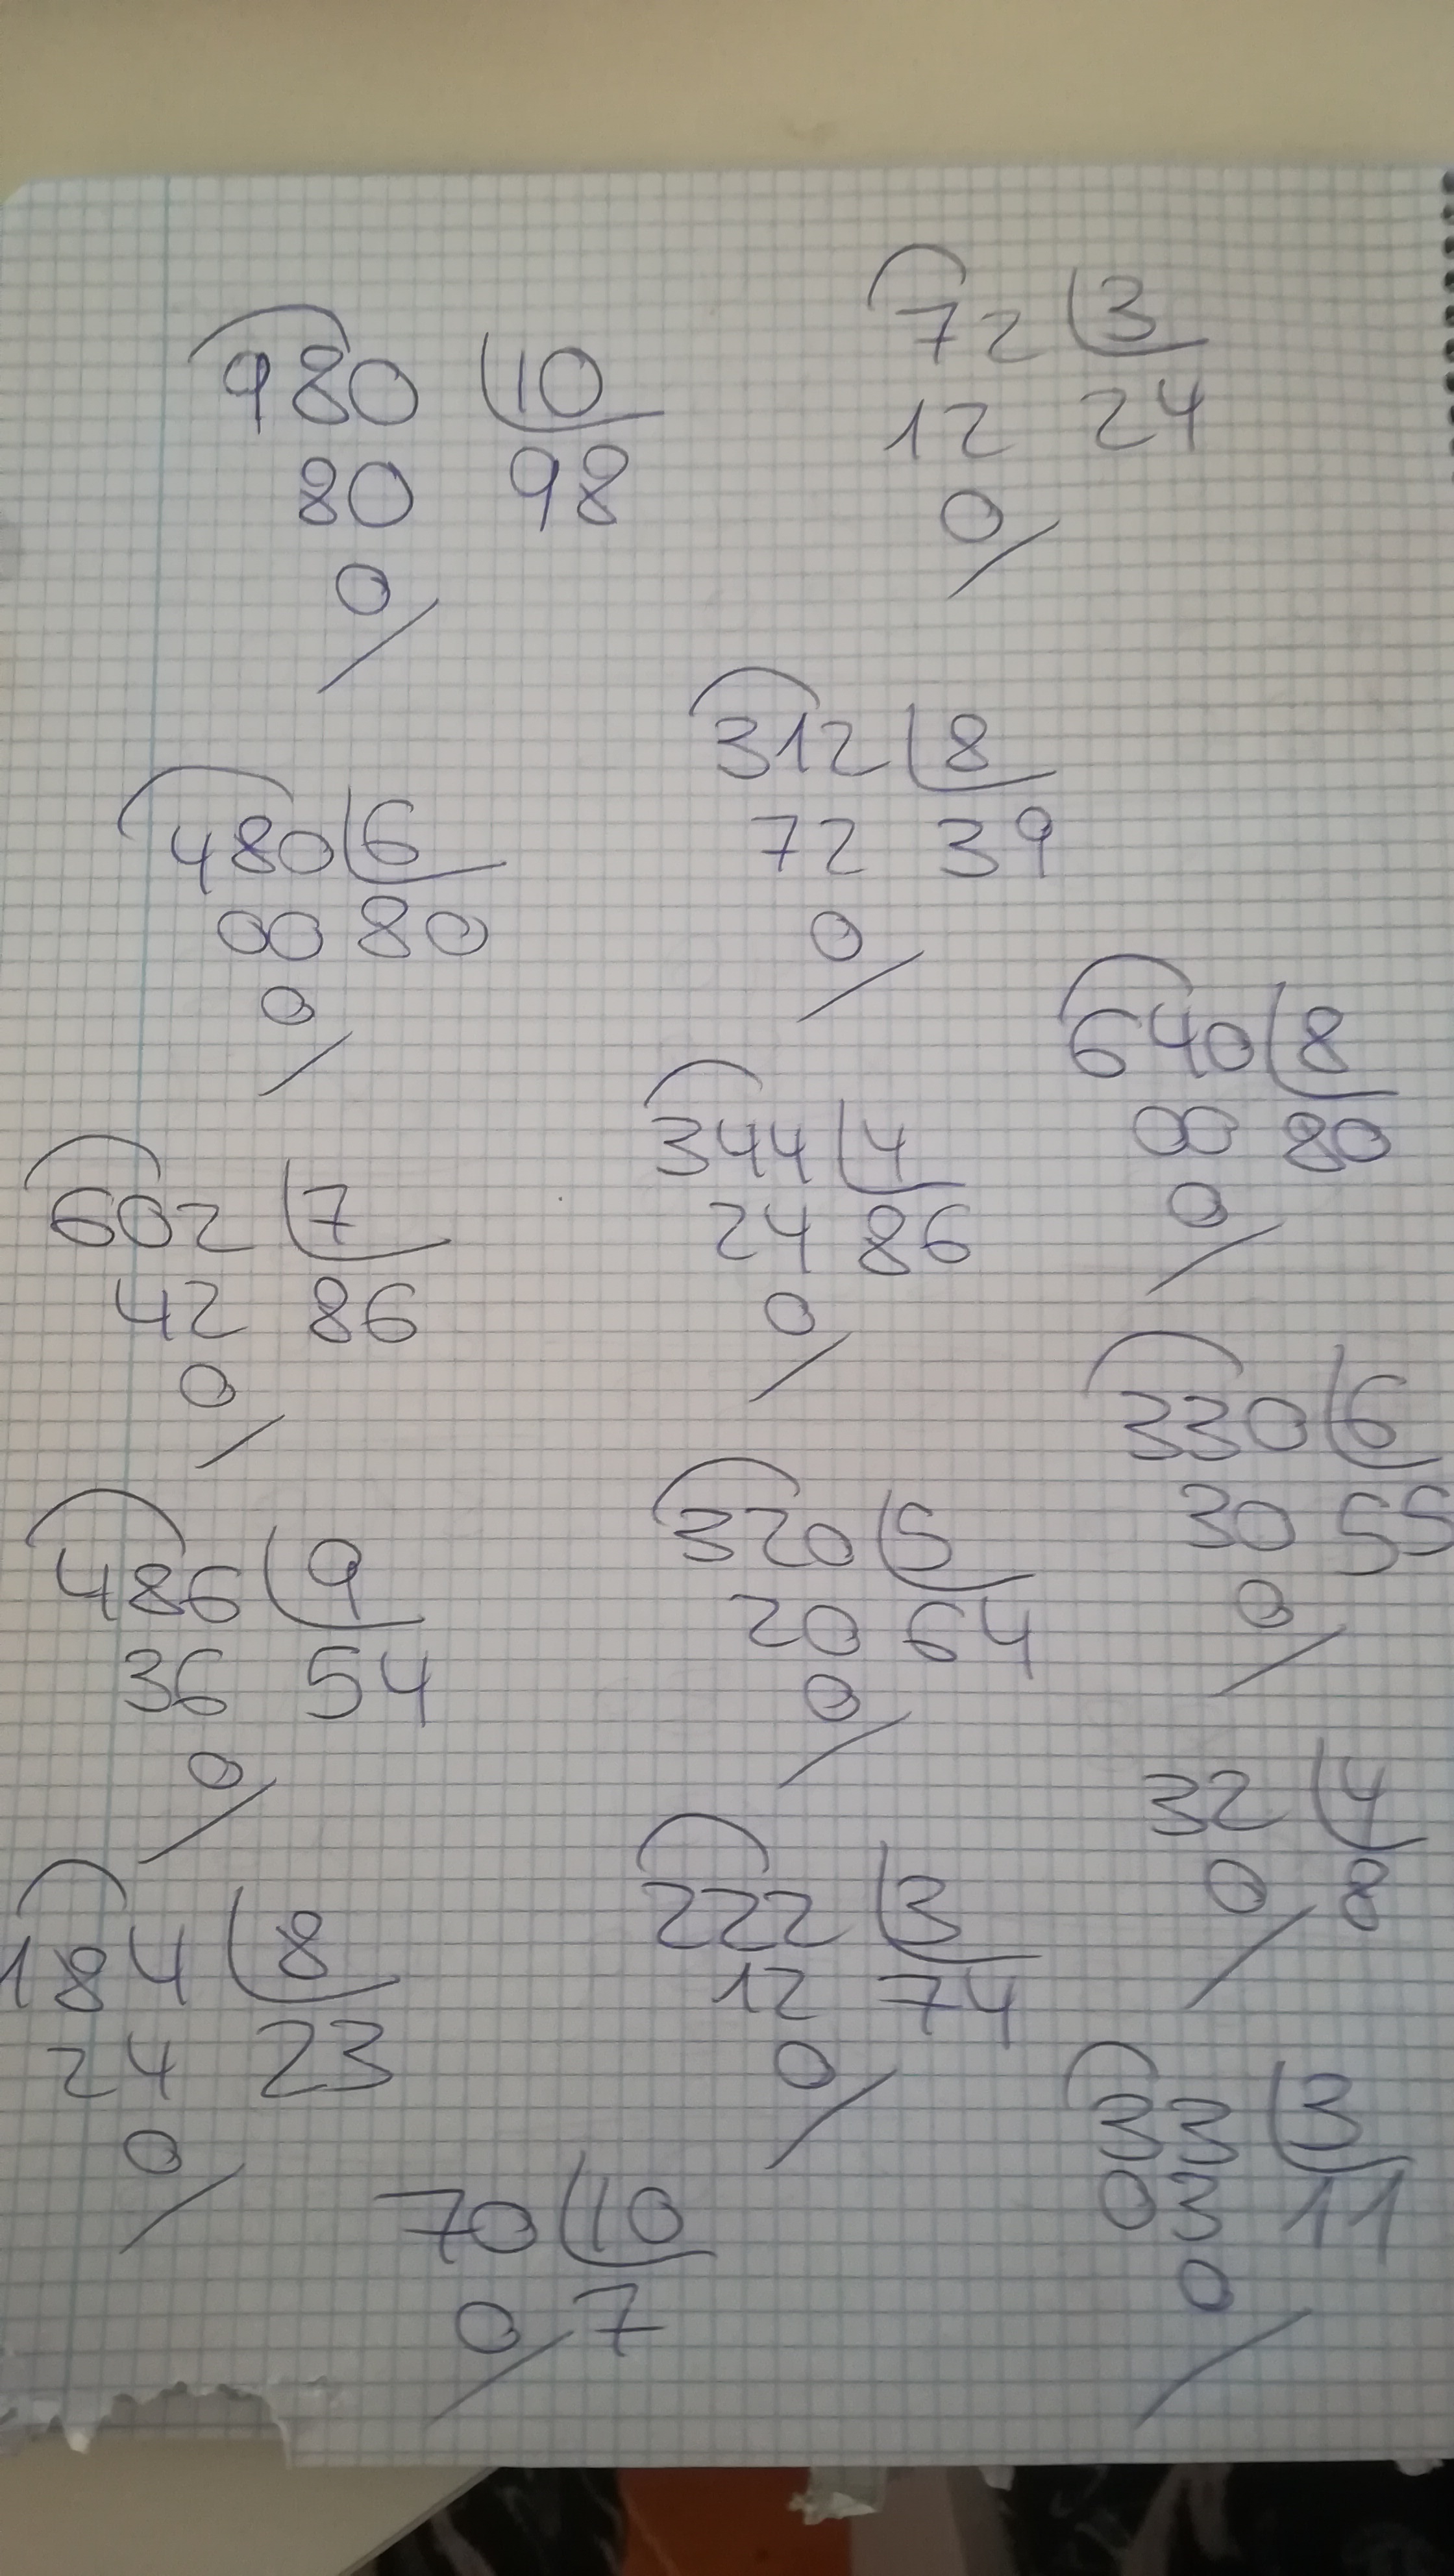 980 10
80 98
0
72 3
12 24
0
312 8
72 39
0
480 6
00 80
0
640 8
00 80
0
344 4
24 86
0
602 7
42 86
0
330 6
30 55
0
320 5
20 64
0
486 9
36 54
0
32 4
0 8
222 3
12 74
0
184 8
24 23
0
33 3
03 11
0
70 10
0 7